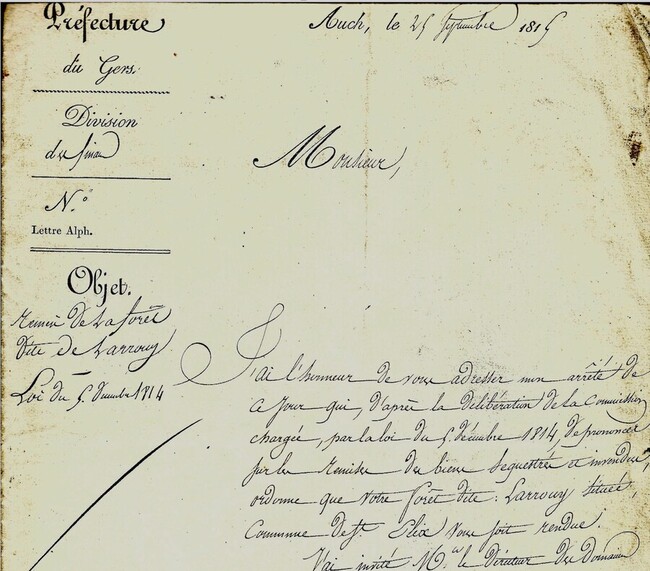 Préfecture
du Gers.
Division
des finan
N.°
Lettre Alph.
Objet.
Remise de la forêt
dite de Larrouy
Loi du 5. decembre 1814
Auch, le 25 Septembre 1815
Monsieur,
J'ai l'honneur de vous adresser mon arrêté de
ce jour qui, d'après la délibération de la Commission
chargée, par la loi du 5. décembre 1814, de prononcer
sur la remise des biens sequestrés et invendus,
ordonne que votre forêt dite: Larrouy située,
Commune de St. Elix vous soit rendue.
J'ai invité M. le Directeur des Domaines